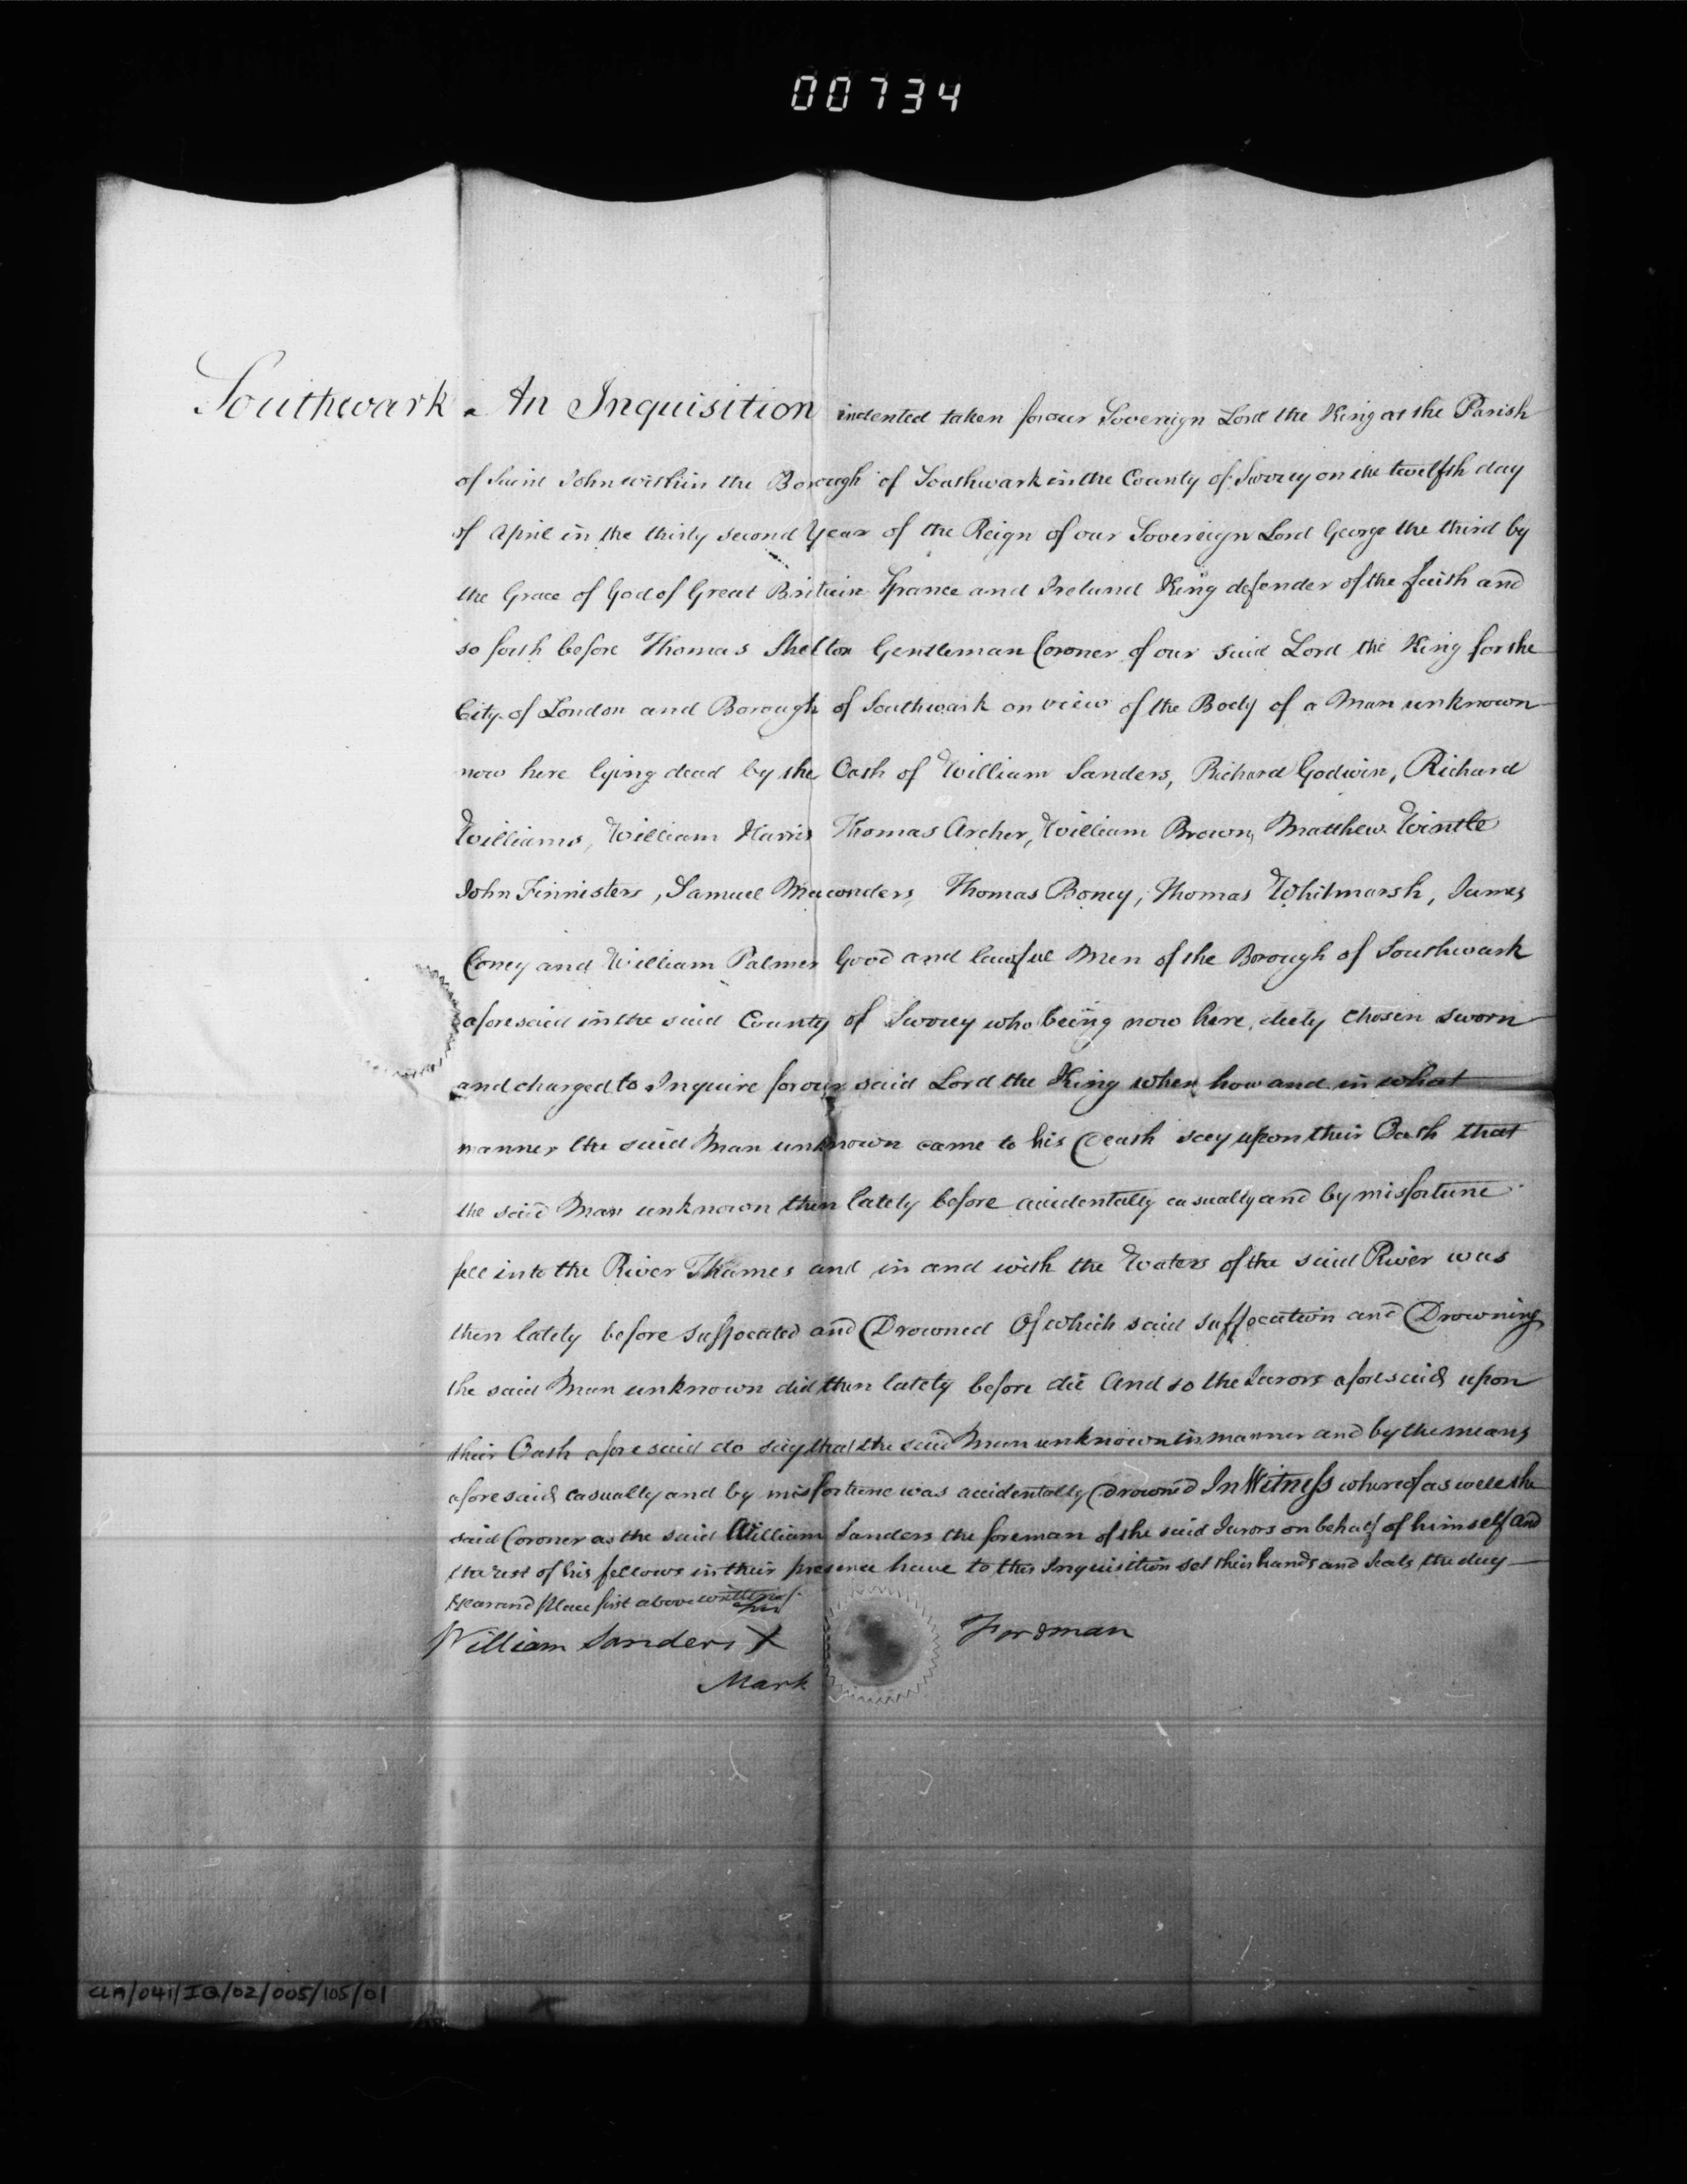 00734
Southwark An Inquisition indented taken for our Sovereign Lord the King at the Parish
of Saint John within the Borough of Southwark in the County of Surrey on the twelfth day
of April in the thirty second Year of the Reign of our Sovereign Lord George the third by
the Grace of God of Great Britain France and Ireland King defender of the faith and
so forth before Thomas Shelton Gentleman Coroner of our said Lord the King for the
City of London and Borough of Southwark on view of the Body of a Man unknown
now here lying dead by the Oath of William Sanders, Richard Godwin, Richard
Williams, William Harris Thomas Archer, William Brown, Matthew Wintle
John Finnisters, Samuel Maconders, Thomas Boney, Thomas Whitmarsh, James
Coney and William Palmer Good and lawful Men of the Borough of Southwark
aforesaid in the said County of Surrey who being now here, duly chosen sworn
and charged to Inquire for our said Lord the King when how and in what
manner the said Man unknown came to his Death say upon their Oath that
the said Man unknown then lately before accidentally casually and by misfortune
fell into the River Thames and in and with the Waters of the said River was
then lately before suffocated and Drowned Of which said suffocation and Drowning
the said Man unknown did then lately before die And so the Jurors aforesaid upon
their Oath aforesaid do say that the said Man unknown in manner and by the means
aforesaid casually and by misfortune was accidentally Drowned In Witness whereof as well the
said Coroner as the said William Sanders the foreman of the said Jurors on behalf of himself and
the rest of his fellows in their presence have to this Inquisition set their hands and Seals the day
Year and Place first above written
his
William Sanders X Fordman
Mark
CLA/041/IQ/02/005/105/01